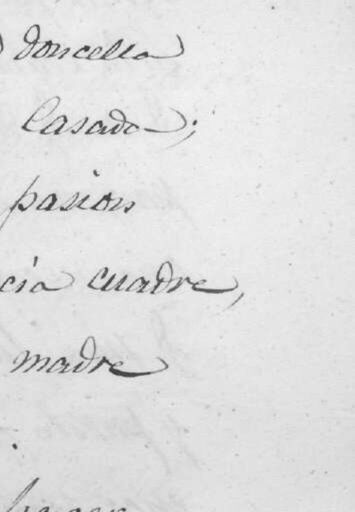 doncella
Casada;
pasion
cia cuadre,
madre